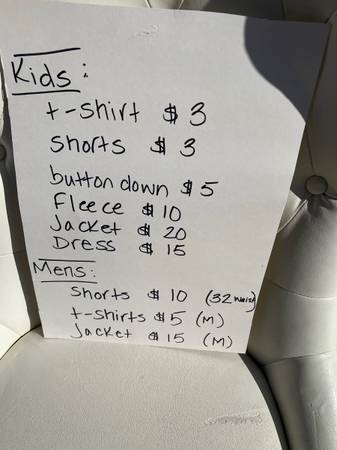 Kids:
t-shirt $3
shorts $3
button down $5
Fleece $10
Jacket $20
Dress $15
Mens:
shorts $10 (32 waist)
t-shirts $5 (M)
Jacket $15 (M)